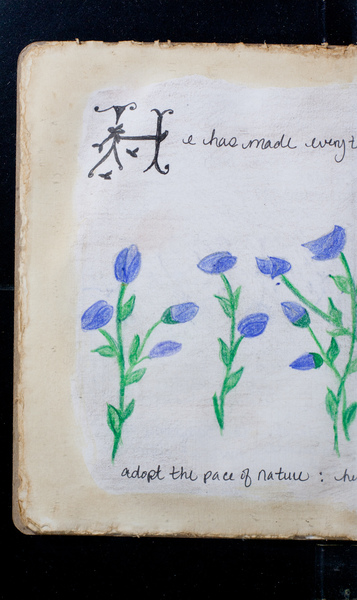 He has made everyt
adopt the pace of nature : he